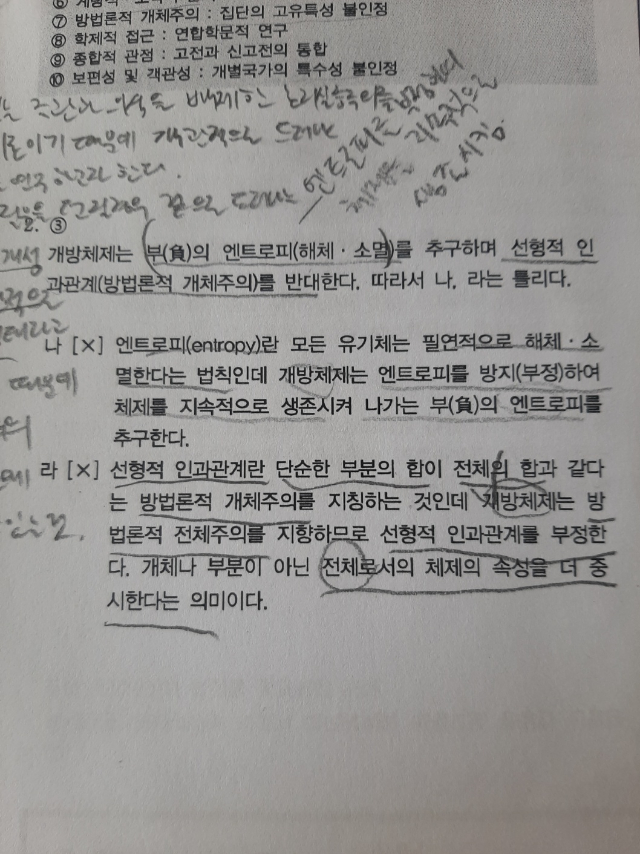 ⑦ 방법론적 개체주의 : 집단의 고유특성 불인정
⑧ 학제적 접근 : 연합학문적 연구
⑨ 종합적 관점 : 고전과 신고전의 통합
⑩ 보편성 및 객관성 : 개별국가의 특수성 불인정
배제한
때문에 객관적으로 드러나
연구 하고자 한다.
엔트로피를
체제는 지속적으로
생존 시킴.
2. ③
개방체제는 부(負)의 엔트로피(해체 · 소멸)를 추구하며 선형적 인
과관계(방법론적 개체주의)를 반대한다. 따라서 나, 라는 틀리다.
때문에
나 [×] 엔트로피(entropy)란 모든 유기체는 필연적으로 해체 · 소
멸한다는 법칙인데 개방체제는 엔트로피를 방지(부정)하여
체제를 지속적으로 생존시켜 나가는 부(負)의 엔트로피를
추구한다.
라 [×] 선형적 인과관계란 단순한 부분의 합이 전체의 합과 같다
는 방법론적 개체주의를 지칭하는 것인데 개방체제는 방
법론적 전체주의를 지향하므로 선형적 인과관계를 부정한
다. 개체나 부분이 아닌 전체로서의 체제의 속성을 더 중
시한다는 의미이다.